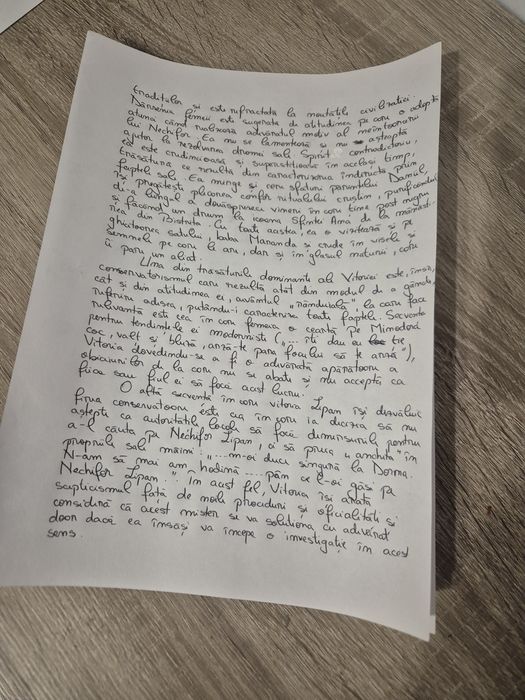 tradițiilor și este refractată la noutățile civilizației.
Dârzenia femeii este sugerată de atitudinea pe care o adoptă
atunci când realizează adevăratul motiv al neîntoarcerii
lui Nechifor. Ea nu se lamentează și nu așteaptă
ajutor la rezolvarea dramei sale. Spirit contradictoriu,
ea este credincioasă și superstițioasă în același timp,
trăsătură ce rezultă din caracterizarea indirectă prin
faptele sale. Ea merge și cere sfaturi părintelui Daniil,
își pregătește plecarea conform ritualului creștin, purificându-
di-a lungul a douăsprezece vineri în care ține post negru
și făcând un drum la icoana Sfintei Ana de la mănăsti-
rea din Bistrita. Cu toate acestea, ea o vizitează și pe
ghicitoarea satului, baba Maranda și crede în visele și
semnele pe care le are, dar și în glasul naturii, care
îi pare un aliat.
Una din trăsăturile dominante ale Vitoriei este, însă,
conservatorismul care rezultă atât din modul de a gândi,
cât și din atitudinea ei, cuvântul „rânduiala", la care face
referire adesea, putându-i caracteriza toate faptele. Secvența
relevantă este cea în care femeia o ceartă pe Minodora
pentru tendințele ei moderniste („... îți dau eu ție
coc, valț și bluză, arză-te para focului să te arză"),
Vitoria dovedindu-se a fi o adevărată apărătoare a
obiceiurilor de la care nu se abate și nu acceptă ca
fiica sau fiul ei să facă acest lucru.
O altă secvență în care Vitoria Lipan își dezvăluie
firea conservatoare este cea în care ia decizia să nu
aștepte ca autoritățile locale să facă demersurile pentru
a-l căuta pe Nechifor Lipan, ci să preia „ancheta" în
propriile sale mâini: „...m-oi duce singură la Dorna.
N-am să mai am hodină ... păn ce l-oi găsi pe
Nechifor Lipan." În acest fel, Vitoria își arată
scepticismul față de noile proceduri și oficialități și
consideră că acest mister se va soluționa cu adevărat
doar dacă ea însăși va începe o investigație în acest
sens.